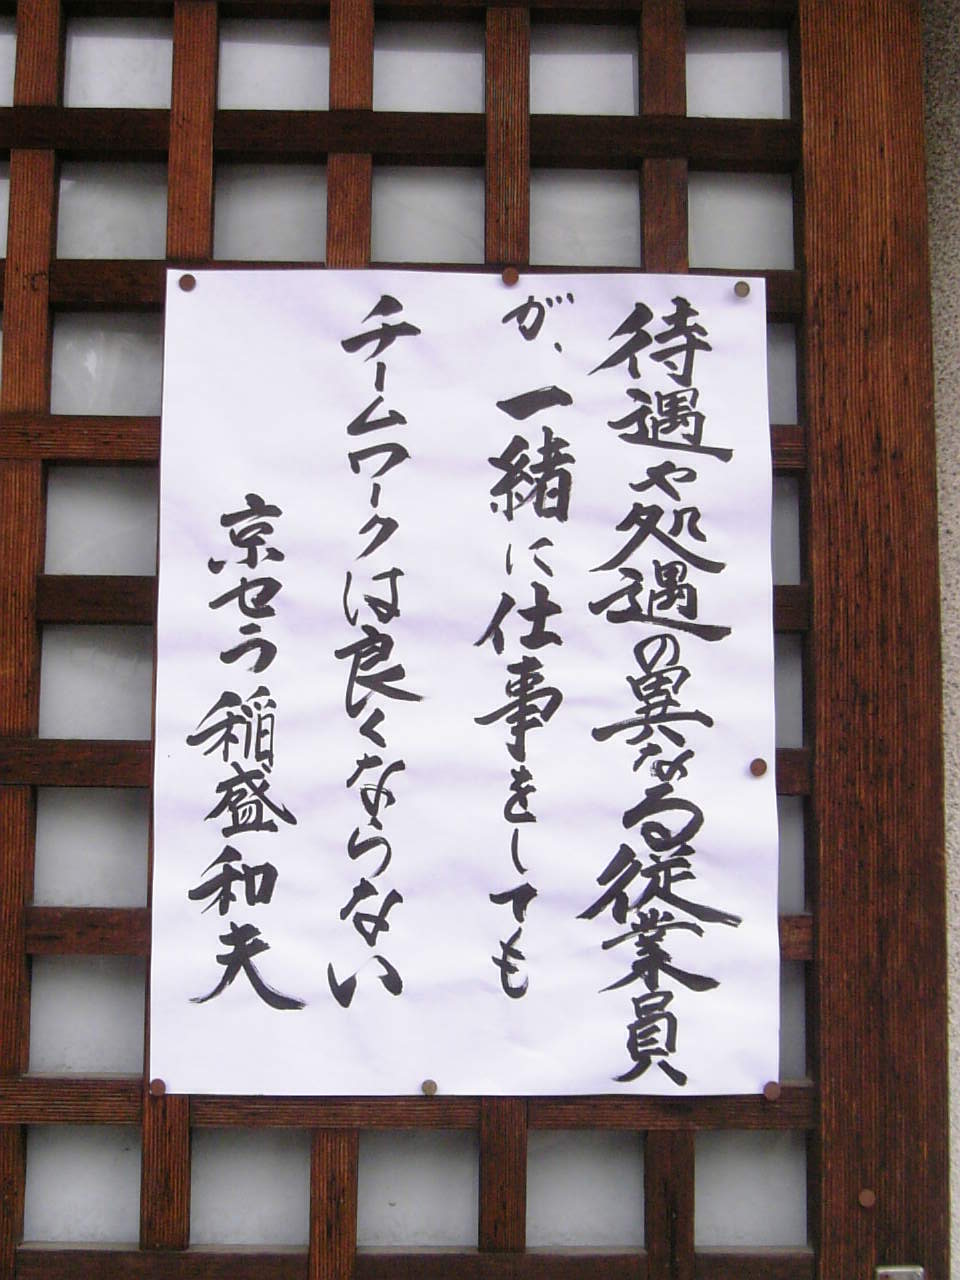 待遇や処遇の異なる従業員
が、一緒に仕事をしても
チームワークは良くならない
京セラ稲盛和夫